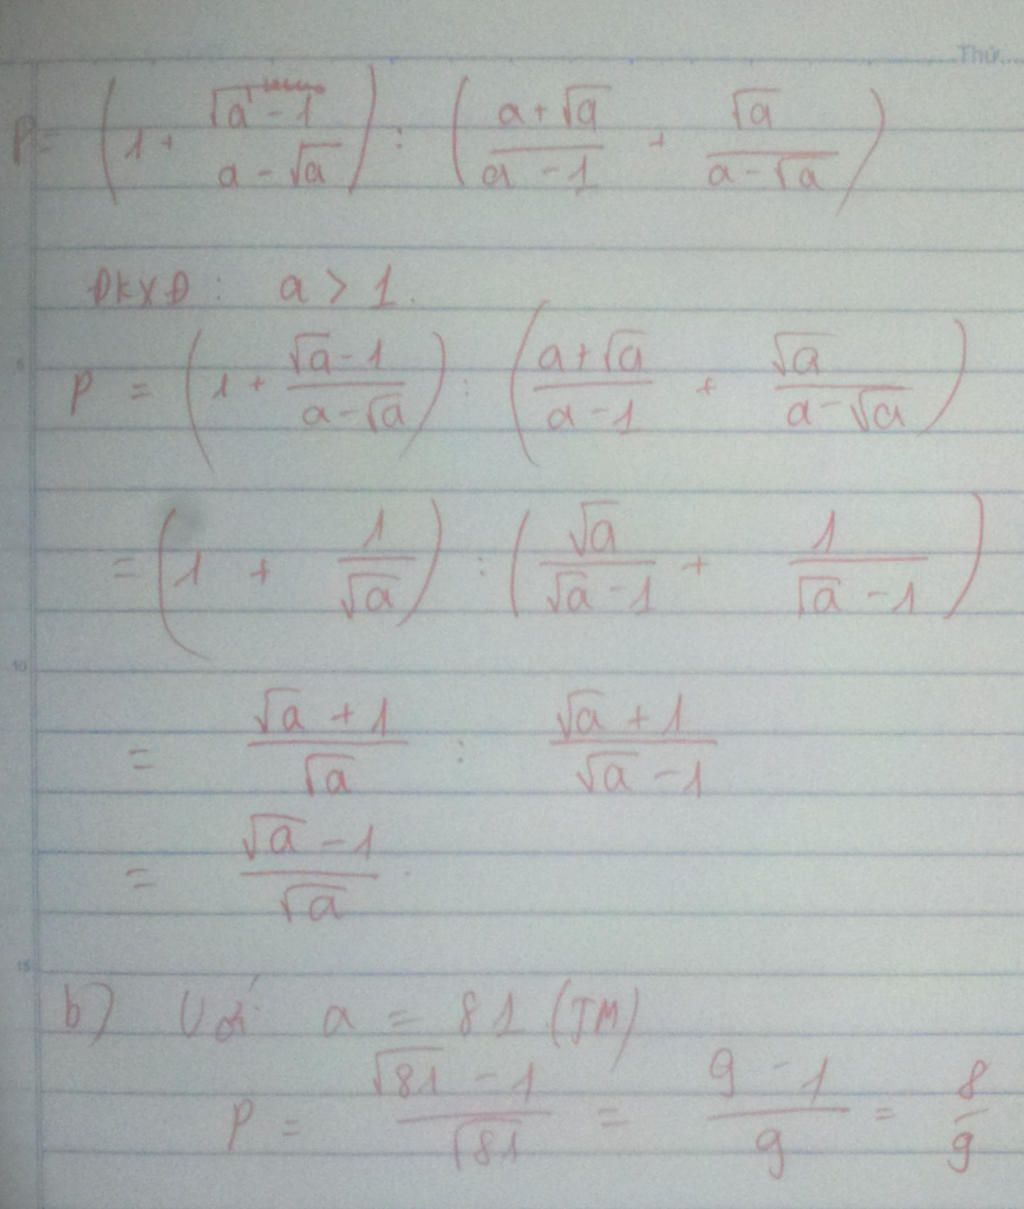 Thứ...
P = (1 + (√a - 1)/(a - √a)) : ((a + √a)/(a - 1) + √a/(a - √a))
ĐKXĐ: a > 1.
5
P = (1 + (√a - 1)/(a - √a)) : ((a + √a)/(a - 1) + √a/(a - √a))
= (1 + 1/√a) : (√a/(√a - 1) + 1/(√a - 1))
10
= (√a + 1)/√a : (√a + 1)/(√a - 1)
= (√a - 1)/√a.
15
b) Với a = 81 (TM)
P = (√81 - 1)/√81 = (9 - 1)/9 = 8/9